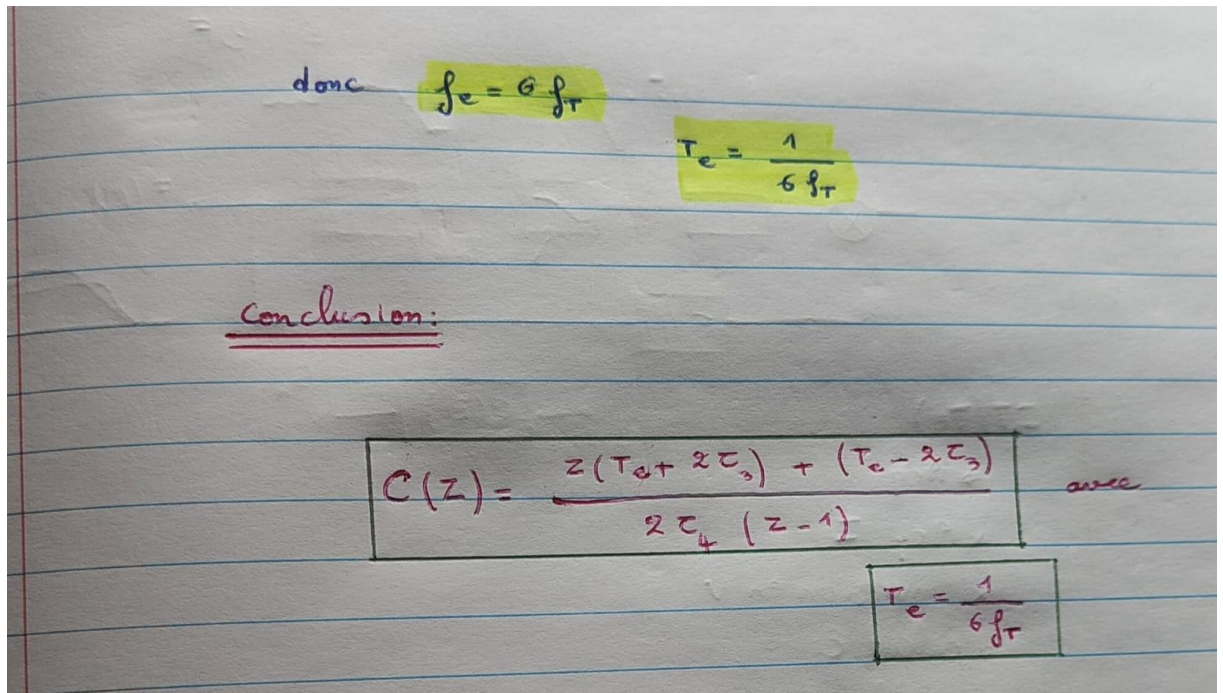 donc fe = 6 fT
Te = 1 / 6 fT
Conclusion:
C(Z) = z(Te + 2τ3) + (Te - 2τ3) / 2τ4 (z - 1) avec
Te = 1 / 6 fT